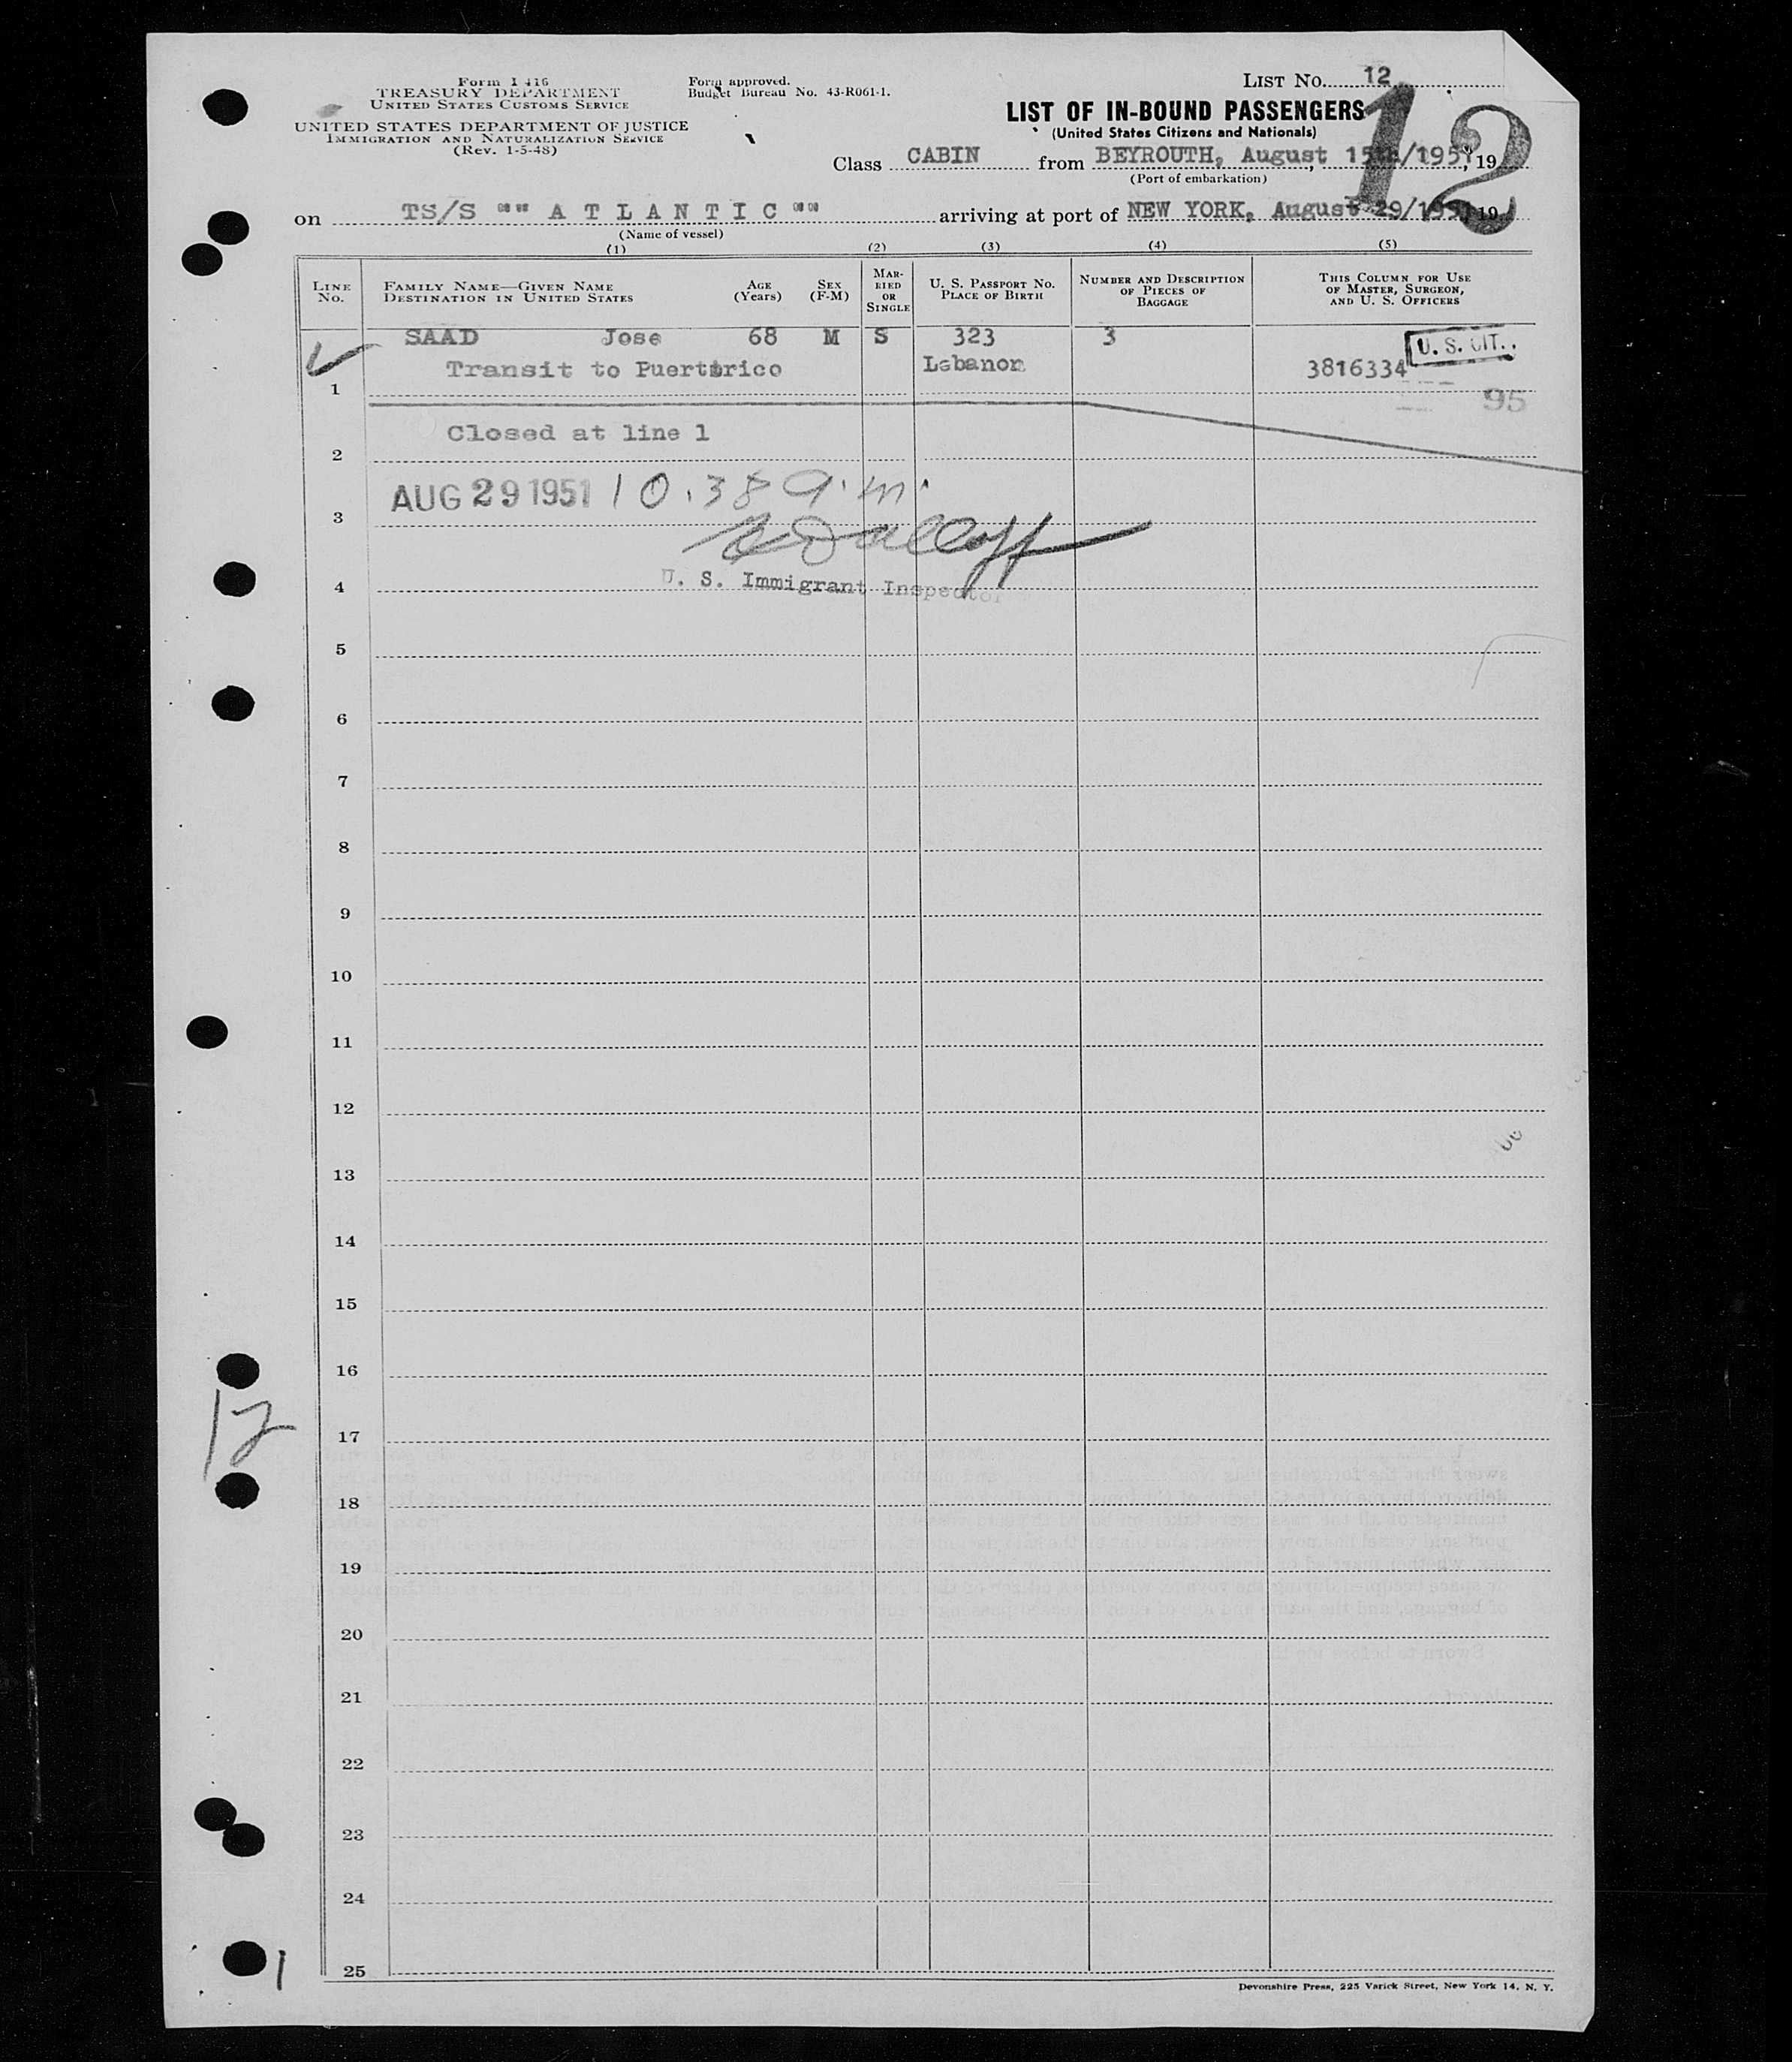 Form I-416
TREASURY DEPARTMENT
UNITED STATES CUSTOMS SERVICE
UNITED STATES DEPARTMENT OF JUSTICE
IMMIGRATION AND NATURALIZATION SERVICE
(Rev. 1-5-48)
Form approved.
Budget Bureau No. 43-R061-1.
LIST No. 12
12
LIST OF IN-BOUND PASSENGERS
(United States Citizens and Nationals)
Class CABIN from BEYROUTH, August 15th/1951, 19
(Port of embarkation)
on TS/S "" A T L A N T I C "" arriving at port of NEW YORK, August 29/1951, 19
(Name of vessel)
(1) (2) (3) (4) (5)
LINE No. FAMILY NAME—GIVEN NAME DESTINATION IN UNITED STATES AGE (Years) SEX (F-M) MARRIED OR SINGLE U. S. PASSPORT NO. PLACE OF BIRTH NUMBER AND DESCRIPTION OF PIECES OF BAGGAGE THIS COLUMN FOR USE OF MASTER, SURGEON, AND U. S. OFFICERS
SAAD Jose 68 M S 323 3 U. S. CIT.
Transit to Puertorico Lebanon 3816334
1 95
Closed at line 1
2
AUG 29 1951 10.38 a.m.
3
U. S. Immigrant Inspector
4
5
6
7
8
9
10
11
12
13
14
15
16
12
17
18
19
20
21
22
23
24
25
1
Devonshire Press, 225 Varick Street, New York 14, N. Y.